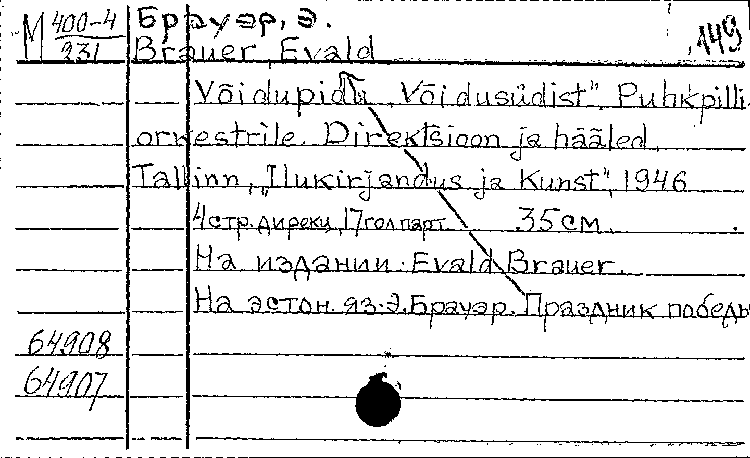 М 400-4 Брауэр, Э.
231 Brauer, Evald 149
Võidupidu "Võidusüdist". Puhkpilli
orkestrile. Direktsioon ja hääled.
Tallinn, "Ilukirjandus ja Kunst", 1946
4 стр. дирекц, 17 гол парт. 35 см.
На издании: Evald Brauer.
На эстон. яз. Э. Брауэр. Праздник победы
64908
64907